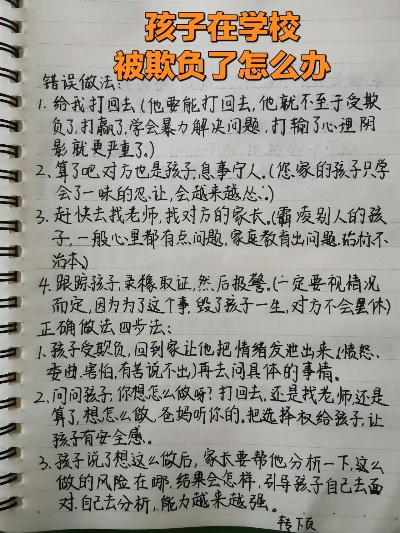 孩子在学校
被欺负了怎么办
错误做法:
1. 给我打回去(他要能打回去,他就不至于受欺
负了,打赢了,学会暴力解决问题,打输了心理阴
影就更严重了。)
2. 算了吧,对方也是孩子,息事宁人。(您家的孩子只学
会了一味的忍让,会越来越怂。)
3. 赶快去找老师,找对方的家长。(霸凌别人的孩
子,一般心里都有点问题,家庭教育出问题.治标不
治本。)
4. 跟踪孩子,录像取证,然后报警。(一定要视情况
而定,因为为了这个事,毁了孩子一生,对方不会罢休)
正确做法四步法:
1. 孩子受欺负,回到家让他把情绪发泄出来.(愤怒、
委曲,害怕,有苦说不出)再去问具体的事情。
2. 问问孩子,你想怎么做呀?打回去,还是找老师,还是
算了,想怎么做,爸妈听你的。把选择权给孩子,让
孩子有安全感。
3. 孩子说了想这么做后,家长要帮他分析一下,这么
做的风险在哪,结果会怎样,引导孩子自己去面
对.自己去分析,能力越来越强。
转下页